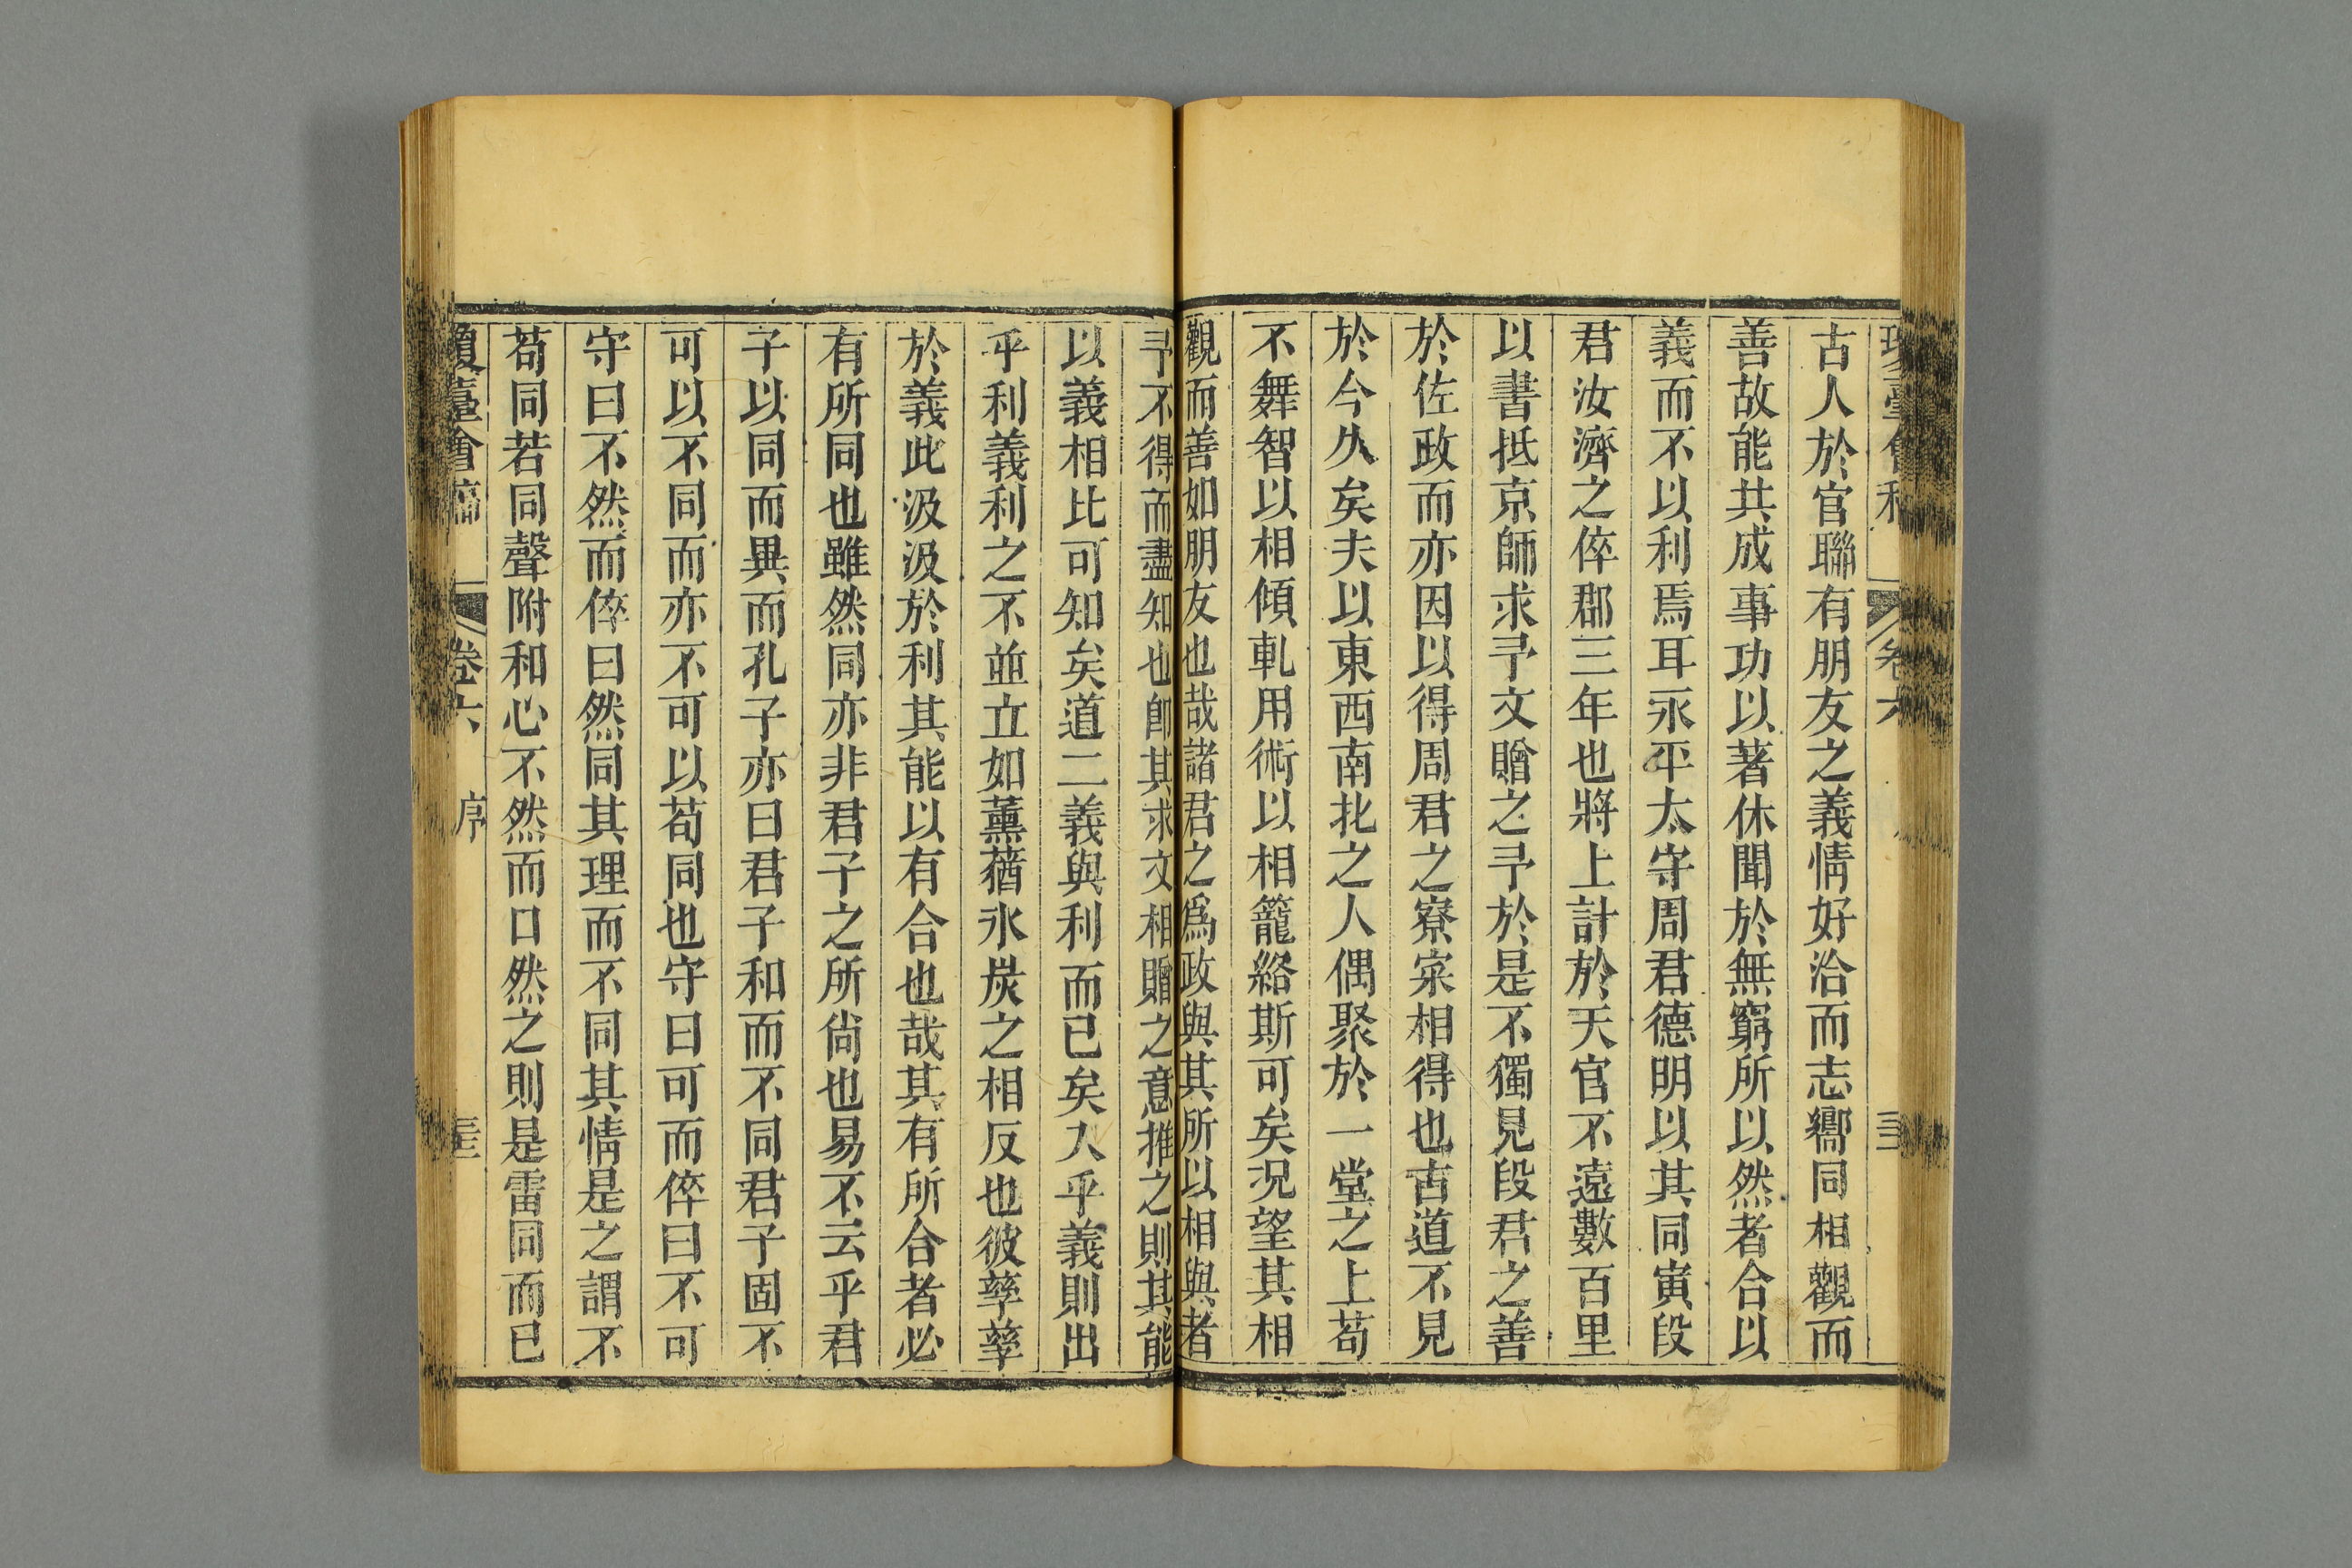 古人於官聯有朋友之義情好洽而志嚮同相觀而
善故能共成事功以著休聞於無窮所以然者合以
義而不以利焉耳永平太守周君德明以其同寅段
君汝濟之倅郡三年也將上計於天官不遠數百里
以書抵京師求予文贈之予於是不獨見段君之善
於佐政而亦因以得周君之寮寀相得也古道不見
於今久矣夫以東西南北之人偶聚於一堂之上苟
不舞智以相傾軋用術以相籠絡斯可矣况望其相
觀而善如朋友也哉諸君之爲政與其所以相與者
予不得而盡知也卽其求文相贈之意推之則其能
以義相比可知矣道二義與利而已矣入乎義則出
乎利義利之不並立如薰蕕氷炭之相反也彼孳孳
於義此汲汲於利其能以有合也哉其有所合者必
有所同也雖然同亦非君子之所尙也易不云乎君
子以同而異而孔子亦曰君子和而不同君子固不
可以不同而亦不可以苟同也守曰可而倅曰不可
守曰不然而倅曰然同其理而不同其情是之謂不
苟同若同聲附和心不然而口然之則是雷同而已
瓊臺會稿 卷六 序